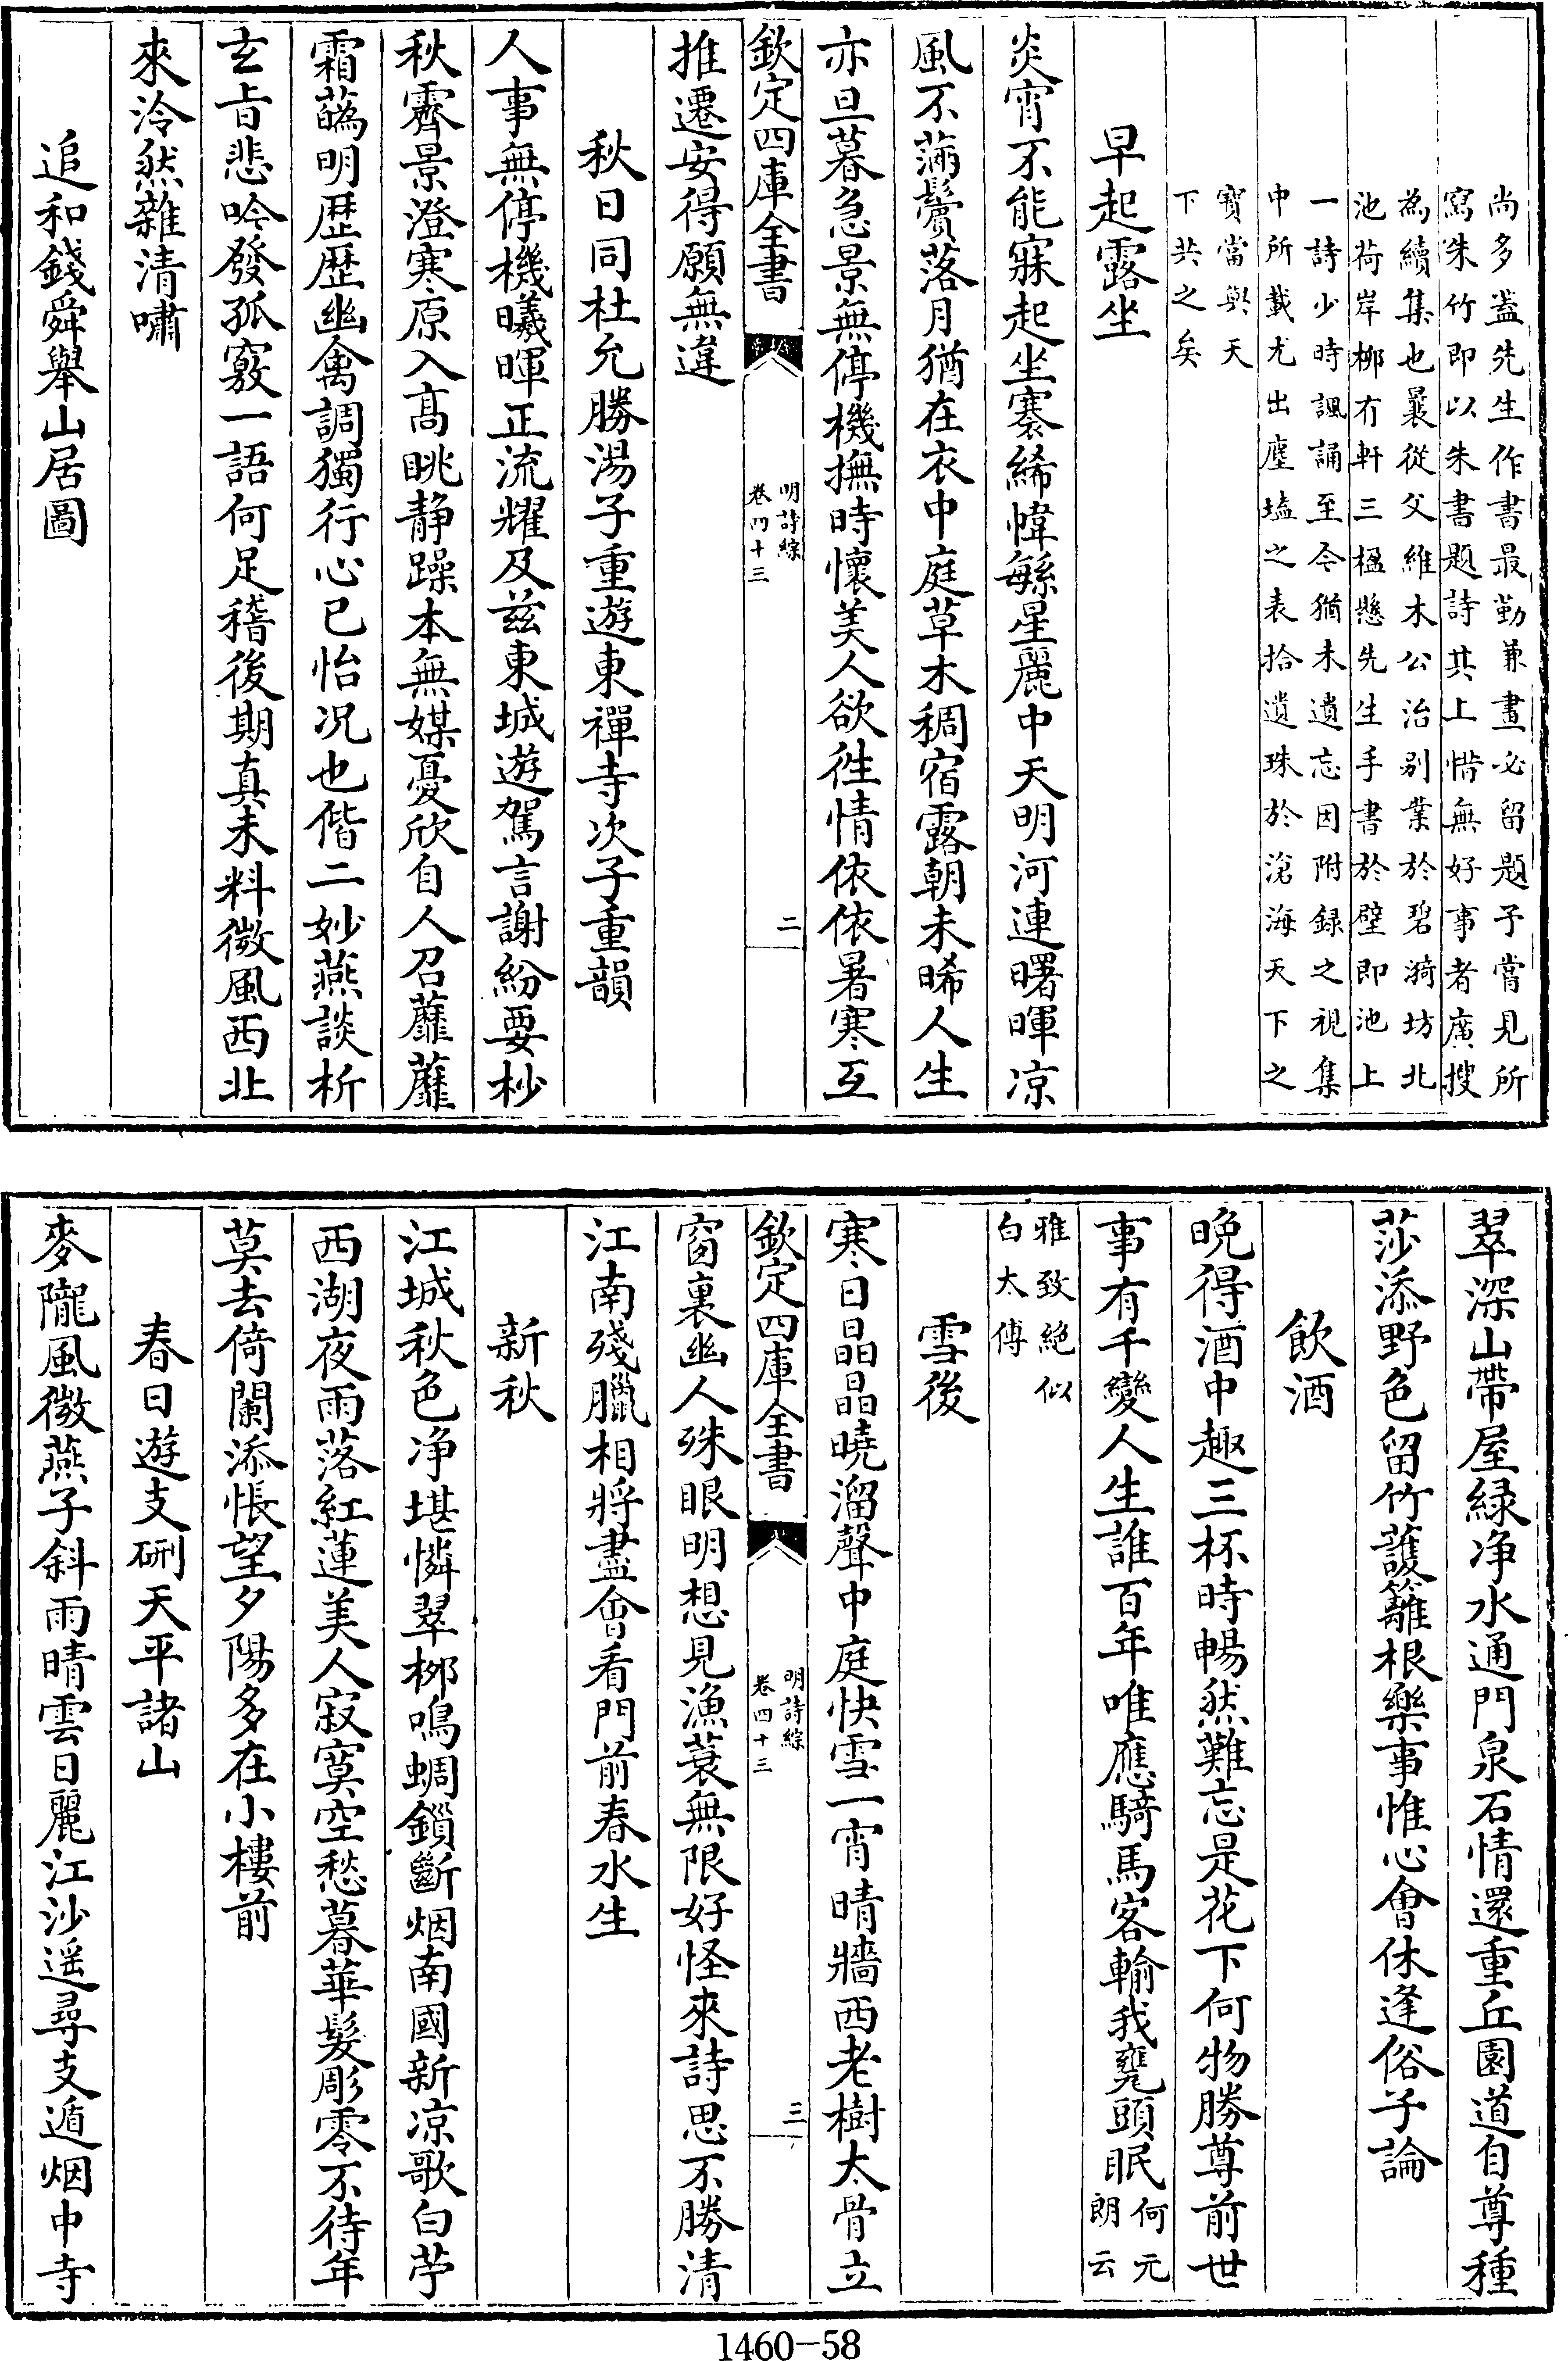 尚多蓋先生作書最勤兼畫必留題予嘗見所
寫朱竹即以朱書題詩其上惜無好事者廣搜
為續集也曩從父維木公治别業於碧漪坊北
池荷岸栁冇軒三楹懸先生手書於壁即池上
一詩少時諷誦至今猶未遺忘因附録之視集
中所載尤出塵壒之表拾遺珠於滄海天下之
寶當與天
下共之矣
早起露坐
炎宵不能寐起坐褰絺幃繇星麗中天明河連曙暉凉
風不滿鬢落月猶在衣中庭草木稠宿露朝未晞人生
亦旦暮急景無停機撫時懷美人欲徃情依依暑寒互
欽定四庫全書
明詩綜
卷四十三
二
推遷安得願無違
秋日同杜允勝湯子重遊東禪寺次子重韻
人事無停機曦暉正流耀及兹東城遊駕言謝紛要杪
秋霽景澄寒原入髙眺静躁本無媒憂欣自人召蘼蘼
霜蘤明歴歴幽禽調獨行心已怡况也偕二妙燕談析
玄㫖悲吟發孤竅一語何足稽後期真未料微風西北
來泠然雜清嘯
追和錢舜舉山居圖
翠深山帶屋緑净水通門泉石情還重丘園道自尊種
莎添野色留竹護籬根樂事惟心會休逢俗子論
飲酒
晚得酒中趣三杯時暢然難忘是花下何物勝尊前世
事有千變人生誰百年唯應騎馬客輸我甕頭眠何元
朗云
雅致絶似
白太傅
雪後
寒日晶晶曉溜聲中庭快雪一宵晴牆西老樹太骨立
欽定四庫全書
明詩綜
卷四十三
三
窗裏幽人殊眼明想見漁蓑無限好怪來詩思不勝清
江南殘臘相將盡會看門前春水生
新秋
江城秋色净堪憐翠栁鳴蜩鎻斷烟南國新凉歌白苧
西湖夜雨落紅蓮美人寂寞空愁暮華髮彫零不待年
莫去倚闌添悵望夕陽多在小樓前
春日遊支硎天平諸山
麥隴風微燕子斜雨晴雲日麗江沙遥尋支遁烟中寺
1460—58